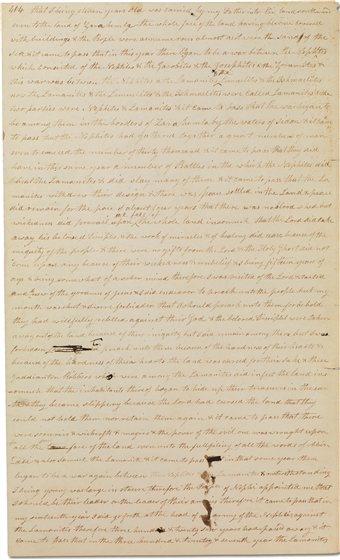 414 that I being eleven years old was carried by my Father into the land southward
even to the land of Zarahemla the whole face of the land having become covered
with buildings & the People were as numerous almost as it were the sand of the
Sea & it came to pass that in this year there began to be a war between the Nephites
which consisted of the Nephites & the Jacobites & the Josephites & the Zoramites &
this war was between the Nephites & the Lamanites & the Lemuelites & the Ishmaelites
now the Lamanites & the Lemuelites & the Ishmaelites were called Lamanites & the
two parties were Nephites & Lamanites & it came to pass that the war began to
be among them in the borders of Zarahemla by the waters of Sidon & it came
to pass that the Nephites had gathered together a great number of men
even to exceed the number of thirty thousand & it came to pass that they did
have in this same year a number of Battles in the which the Nephites did
beat the Lamanites & did slay many of them & it came to pass that the La
manites withdrew their design & there was peace settled in the Land & peace
did remain for the space of about four years that there was no blood shed but
wickedness did prevail upon the face of the whole land insomuch that the Lord did take
away his beloved Disciples & the work of miracles & of healing did cease because of the
iniquity of the people & there were no gifts from the Lord & the Holy Ghost did not
come upon any because of their wickedness & unbelief & I being fifteen years of
age & being somewhat of a sober mind therefore I was visited of the Lord & tasted
and knew of the goodness of Jesus & I did endeavor to preach unto this people but my
mouth was shut & I were forbidden that I should preach unto them for behold
they had wilfully rebelled against their God & the beloved Disciples were taken
away out of the land because of their iniquity but I did remain among them but I was
forbidden to preach unto them because of the hardness of their hearts &
because of the hardness of their hearts the land was cursed for their sake & these
Gadianton Robbers which were among the Lamanites did infest the land in
somuch that the inhabitants thereof began to hide up their treasures in the earth
& they became slippery because the Lord had cursed the land that they
could not hold them nor retain them again & it came to pass that there
were sorceries & witchcrafts & magics & the power of the evil one was wrought upon
all the face of the land even unto the fulfilling of all the words of Abin
adi & also Samuel the Lamanite & it came to pass in that same year there
began to be a war again between the Nephites & the Lamanites & notwithstanding
I being young was large in stature therefore the People of Nephi appointed me that
I should be their leader or the leader of their armies therefore it came to pass that in
my sixteenth year I did go forth at the head of an army of the Nephites against
the Lamanites therefore three hundred & twenty & six years had passed away & it
came to pass that in the three hundred & twenty & seventh year the Lamanites